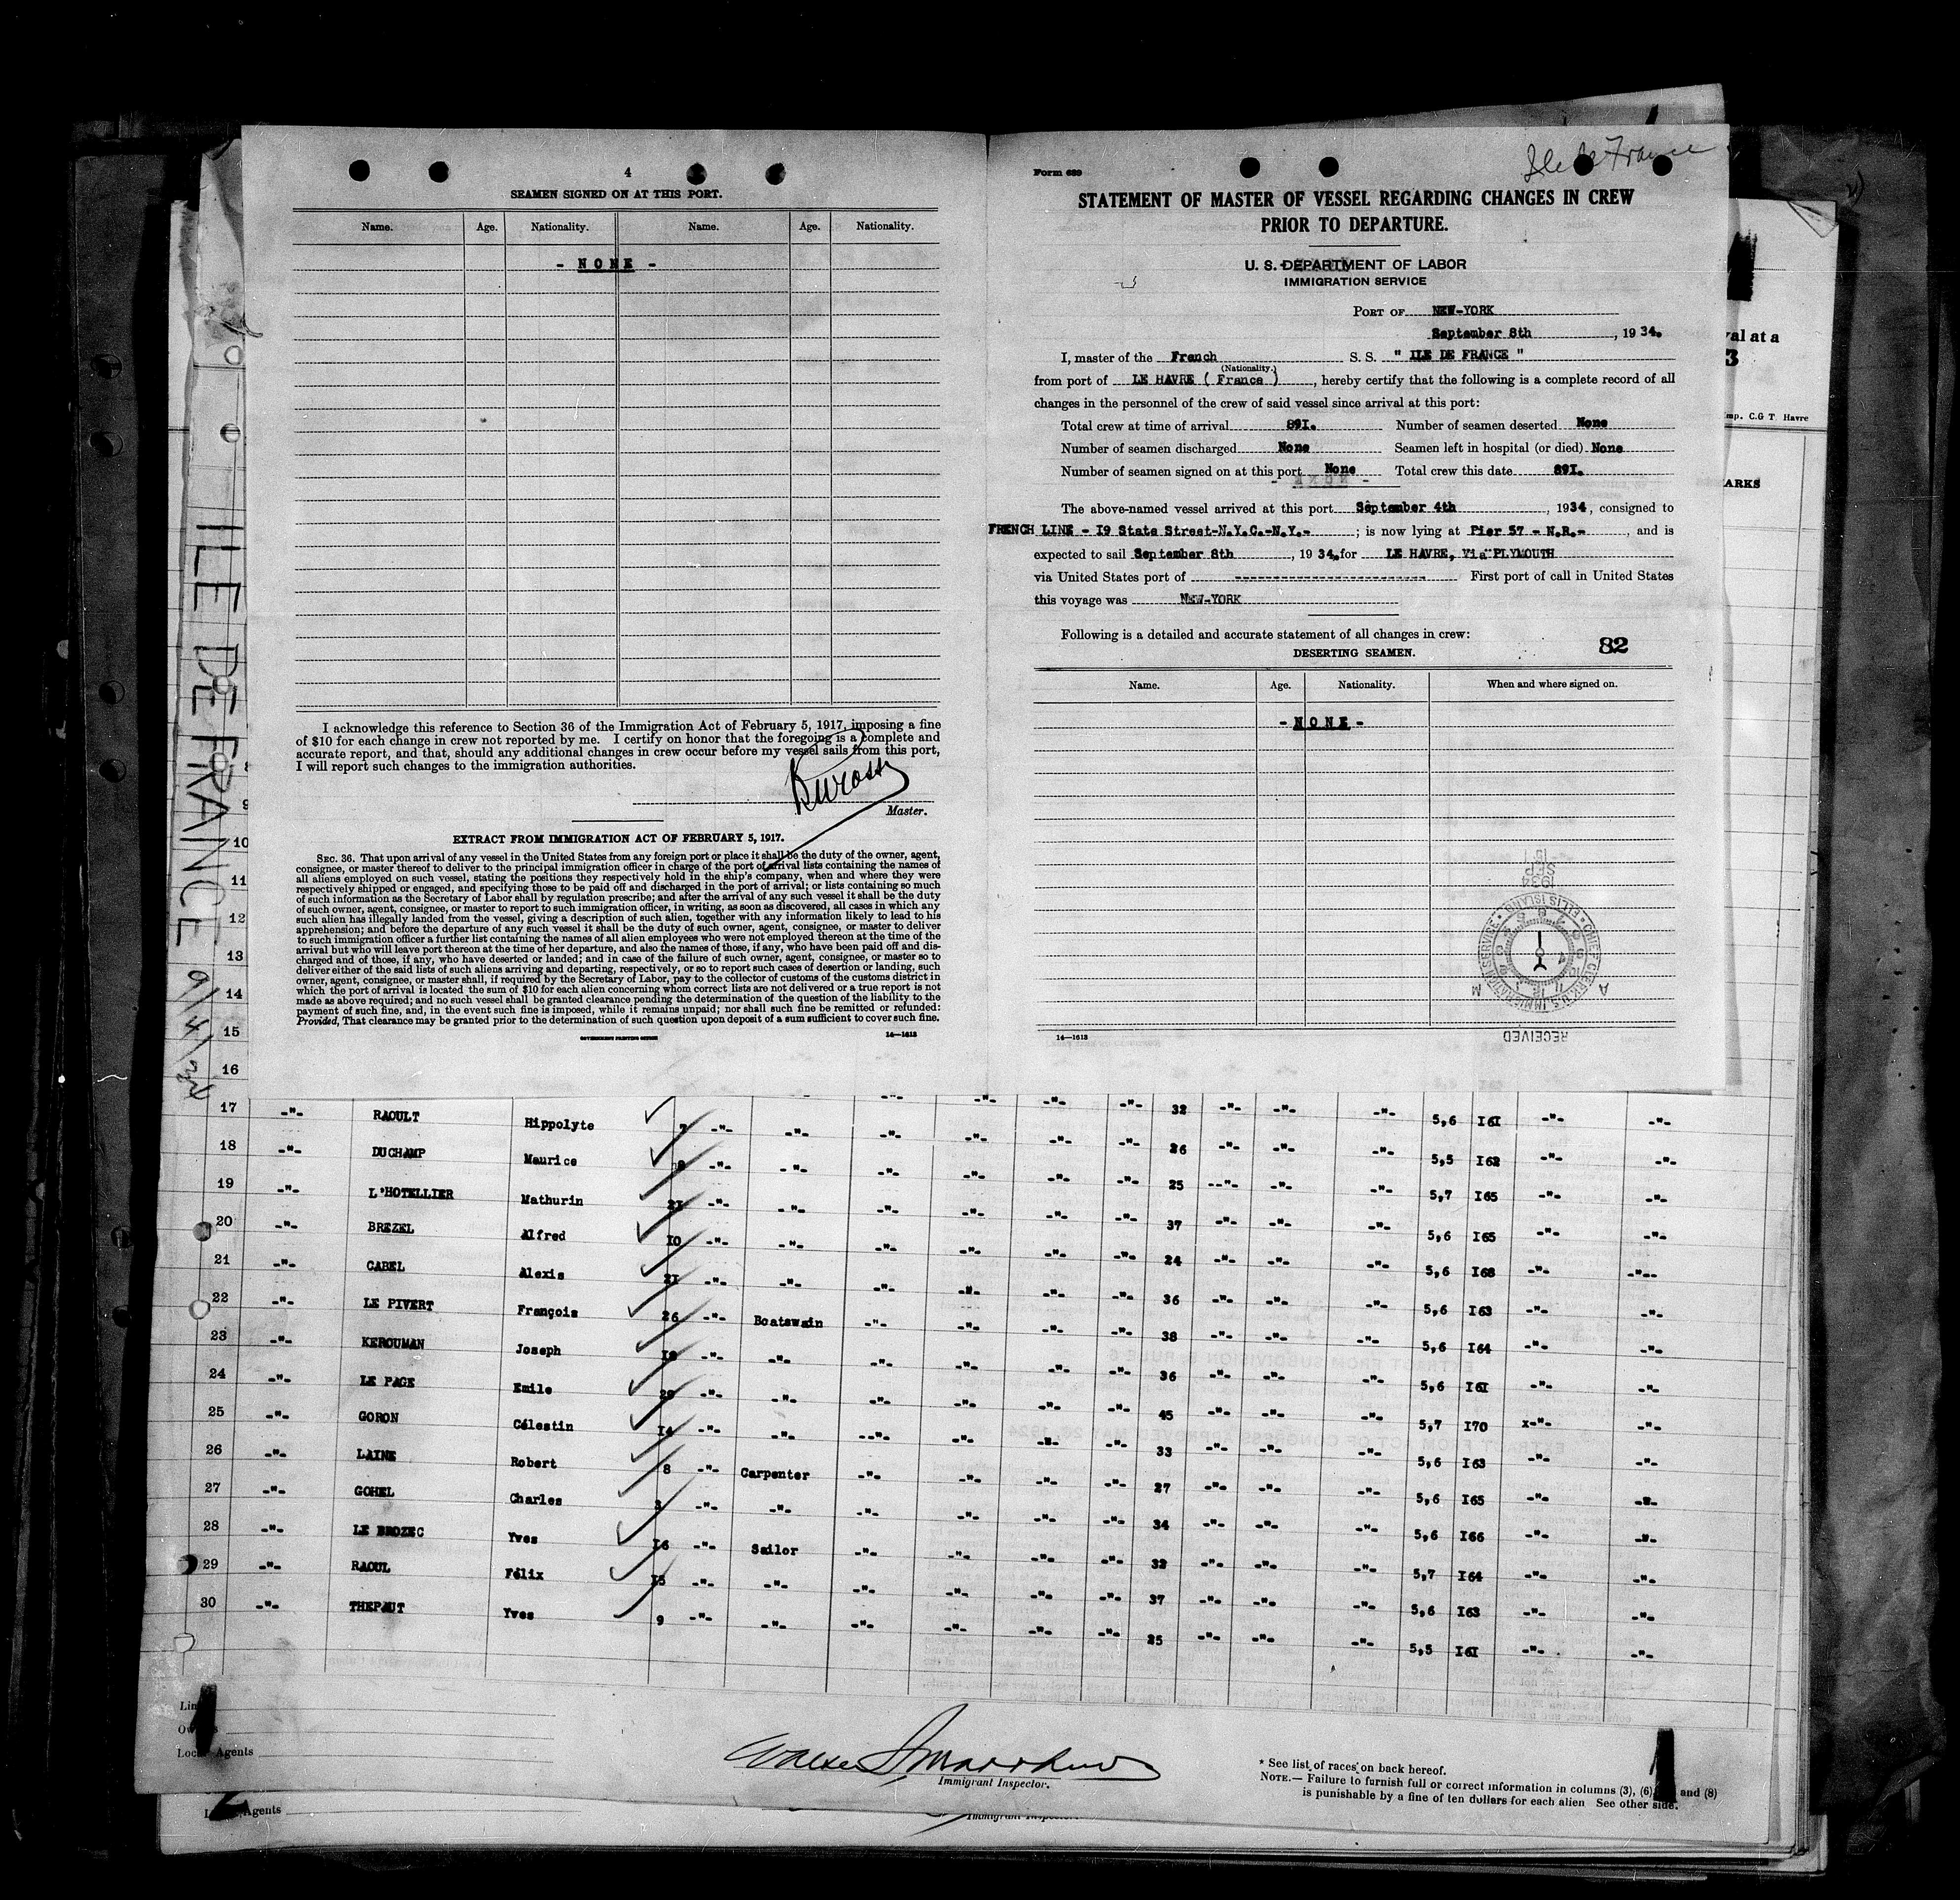 4
SEAMEN SIGNED ON AT THIS PORT.
Name. Age. Nationality. Name. Age. Nationality.
- NONE -
I acknowledge this reference to Section 36 of the Immigration Act of February 5, 1917, imposing a fine
of $10 for each change in crew not reported by me. I certify on honor that the foregoing is a complete and
accurate report, and that, should any additional changes in crew occur before my vessel sails from this port,
I will report such changes to the immigration authorities.
Master.
EXTRACT FROM IMMIGRATION ACT OF FEBRUARY 5, 1917.
SEC. 36. That upon arrival of any vessel in the United States from any foreign port or place it shall be the duty of the owner, agent,
consignee, or master thereof to deliver to the principal immigration officer in charge of the port of arrival lists containing the names of
all aliens employed on such vessel, stating the positions they respectively hold in the ship's company, when and where they were
respectively shipped or engaged, and specifying those to be paid off and discharged in the port of arrival; or lists containing so much
of such information as the Secretary of Labor shall by regulation prescribe; and after the arrival of any such vessel it shall be the duty
of such owner, agent, consignee, or master to report to such immigration officer, in writing, as soon as discovered, all cases in which any
such alien has illegally landed from the vessel, giving a description of such alien, together with any information likely to lead to his
apprehension; and before the departure of any such vessel it shall be the duty of such owner, agent, consignee, or master to deliver
to such immigration officer a further list containing the names of all alien employees who were not employed thereon at the time of the
arrival but who will leave port thereon at the time of her departure, and also the names of those, if any, who have been paid off and dis-
charged and of those, if any, who have deserted or landed; and in case of the failure of such owner, agent, consignee, or master so to
deliver either of the said lists of such aliens arriving and departing, respectively, or so to report such cases of desertion or landing, such
owner, agent, consignee, or master shall, if required by the Secretary of Labor, pay to the collector of customs of the customs district in
which the port of arrival is located the sum of $10 for each alien concerning whom correct lists are not delivered or a true report is not
made as above required; and no such vessel shall be granted clearance pending the determination of the question of the liability to the
payment of such fine, and, in the event such fine is imposed, while it remains unpaid; nor shall such fine be remitted or refunded:
Provided, That clearance may be granted prior to the determination of such question upon deposit of a sum sufficient to cover such fine.
GOVERNMENT PRINTING OFFICE 14—1613
Ile de France
Form 689
STATEMENT OF MASTER OF VESSEL REGARDING CHANGES IN CREW
PRIOR TO DEPARTURE.
U. S. DEPARTMENT OF LABOR
IMMIGRATION SERVICE
PORT OF NEW-YORK
September 8th, 1934.
I, master of the French S. S. " ILE DE FRANCE "
(Nationality.)
from port of LE HAVRE ( France ), hereby certify that the following is a complete record of all
changes in the personnel of the crew of said vessel since arrival at this port:
Total crew at time of arrival 89I. Number of seamen deserted None
Number of seamen discharged None Seamen left in hospital (or died) None
Number of seamen signed on at this port None Total crew this date 89I.
The above-named vessel arrived at this port September 4th, 1934, consigned to
FRENCH LINE - I9 State Street-N.Y.C.-N.Y.- ; is now lying at Pier 57 - N.R.-, and is
expected to sail September 8th, 1934. for LE HAVRE, Via PLYMOUTH
via United States port of ------------------------- First port of call in United States
this voyage was NEW-YORK
Following is a detailed and accurate statement of all changes in crew:
82
DESERTING SEAMEN.
Name. Age. Nationality. When and where signed on.
- NONE -
1934
SEP
CHIEF CLERK U.S. IMMIGRATION SERVICE ELLIS ISLAND
A M
RECEIVED
14—1613
val at a
3
Imp. C.G T Havre
ARKS
ILE DE FRANCE 9/4/34
8
9
10
11
12
13
14
15
16
17 -"- RAOULT Hippolyte 7 -"- -"- -"- -"- -"- -"- 32 -"- -"- -"- 5,6 I6I -"- -"-
18 -"- DUCHAMP Maurice -"- -"- -"- -"- -"- -"- 26 -"- -"- -"- 5,5 I62 -"- -"-
19 -"- L'HOTELLIER Mathurin 2I -"- -"- -"- -"- -"- -"- 25 -"- -"- -"- 5,7 I65 -"- -"-
20 -"- BREZEL Alfred I0 -"- -"- -"- -"- -"- -"- 37 -"- -"- -"- 5,6 I65 -"- -"-
21 -"- CABEL Alexis 2I -"- -"- -"- -"- -"- -"- 24 -"- -"- -"- 5,6 I68 -"- -"-
22 -"- LE PIVERT François 26 -"- Boatswain -"- -"- -"- -"- 36 -"- -"- -"- 5,6 I63 -"- -"-
23 -"- KEROUMAN Joseph I8 -"- -"- -"- -"- -"- -"- 38 -"- -"- -"- 5,6 I64 -"- -"-
24 -"- LE PAGE Emile 20 -"- -"- -"- -"- -"- -"- 36 -"- -"- -"- 5,6 I6I -"- -"-
25 -"- GORON Célestin I4 -"- -"- -"- -"- -"- -"- 45 -"- -"- -"- 5,7 I70 x-"- -"-
26 -"- LAINE Robert 8 -"- Carpenter -"- -"- -"- -"- 33 -"- -"- -"- 5,6 I63 -"- -"-
27 -"- GOHEL Charles 3 -"- -"- -"- -"- -"- -"- 27 -"- -"- -"- 5,6 I65 -"- -"-
28 -"- LE BROZEC Yves I6 -"- Sailor -"- -"- -"- -"- 34 -"- -"- -"- 5,6 I66 -"- -"-
29 -"- RAOUL Félix I5 -"- -"- -"- -"- -"- -"- 32 -"- -"- -"- 5,7 I64 -"- -"-
30 -"- THEPAUT Yves 9 -"- -"- -"- -"- -"- -"- 37 -"- -"- -"- 5,6 I63 -"- -"-
25 -"- -"- -"- 5,5 I6I -"- -"-
Local Agents
Immigrant Inspector.
* See list of races on back hereof.
NOTE.— Failure to furnish full or correct information in columns (3), (6) and (8)
is punishable by a fine of ten dollars for each alien See other side.
Agents
Immigrant Inspector.